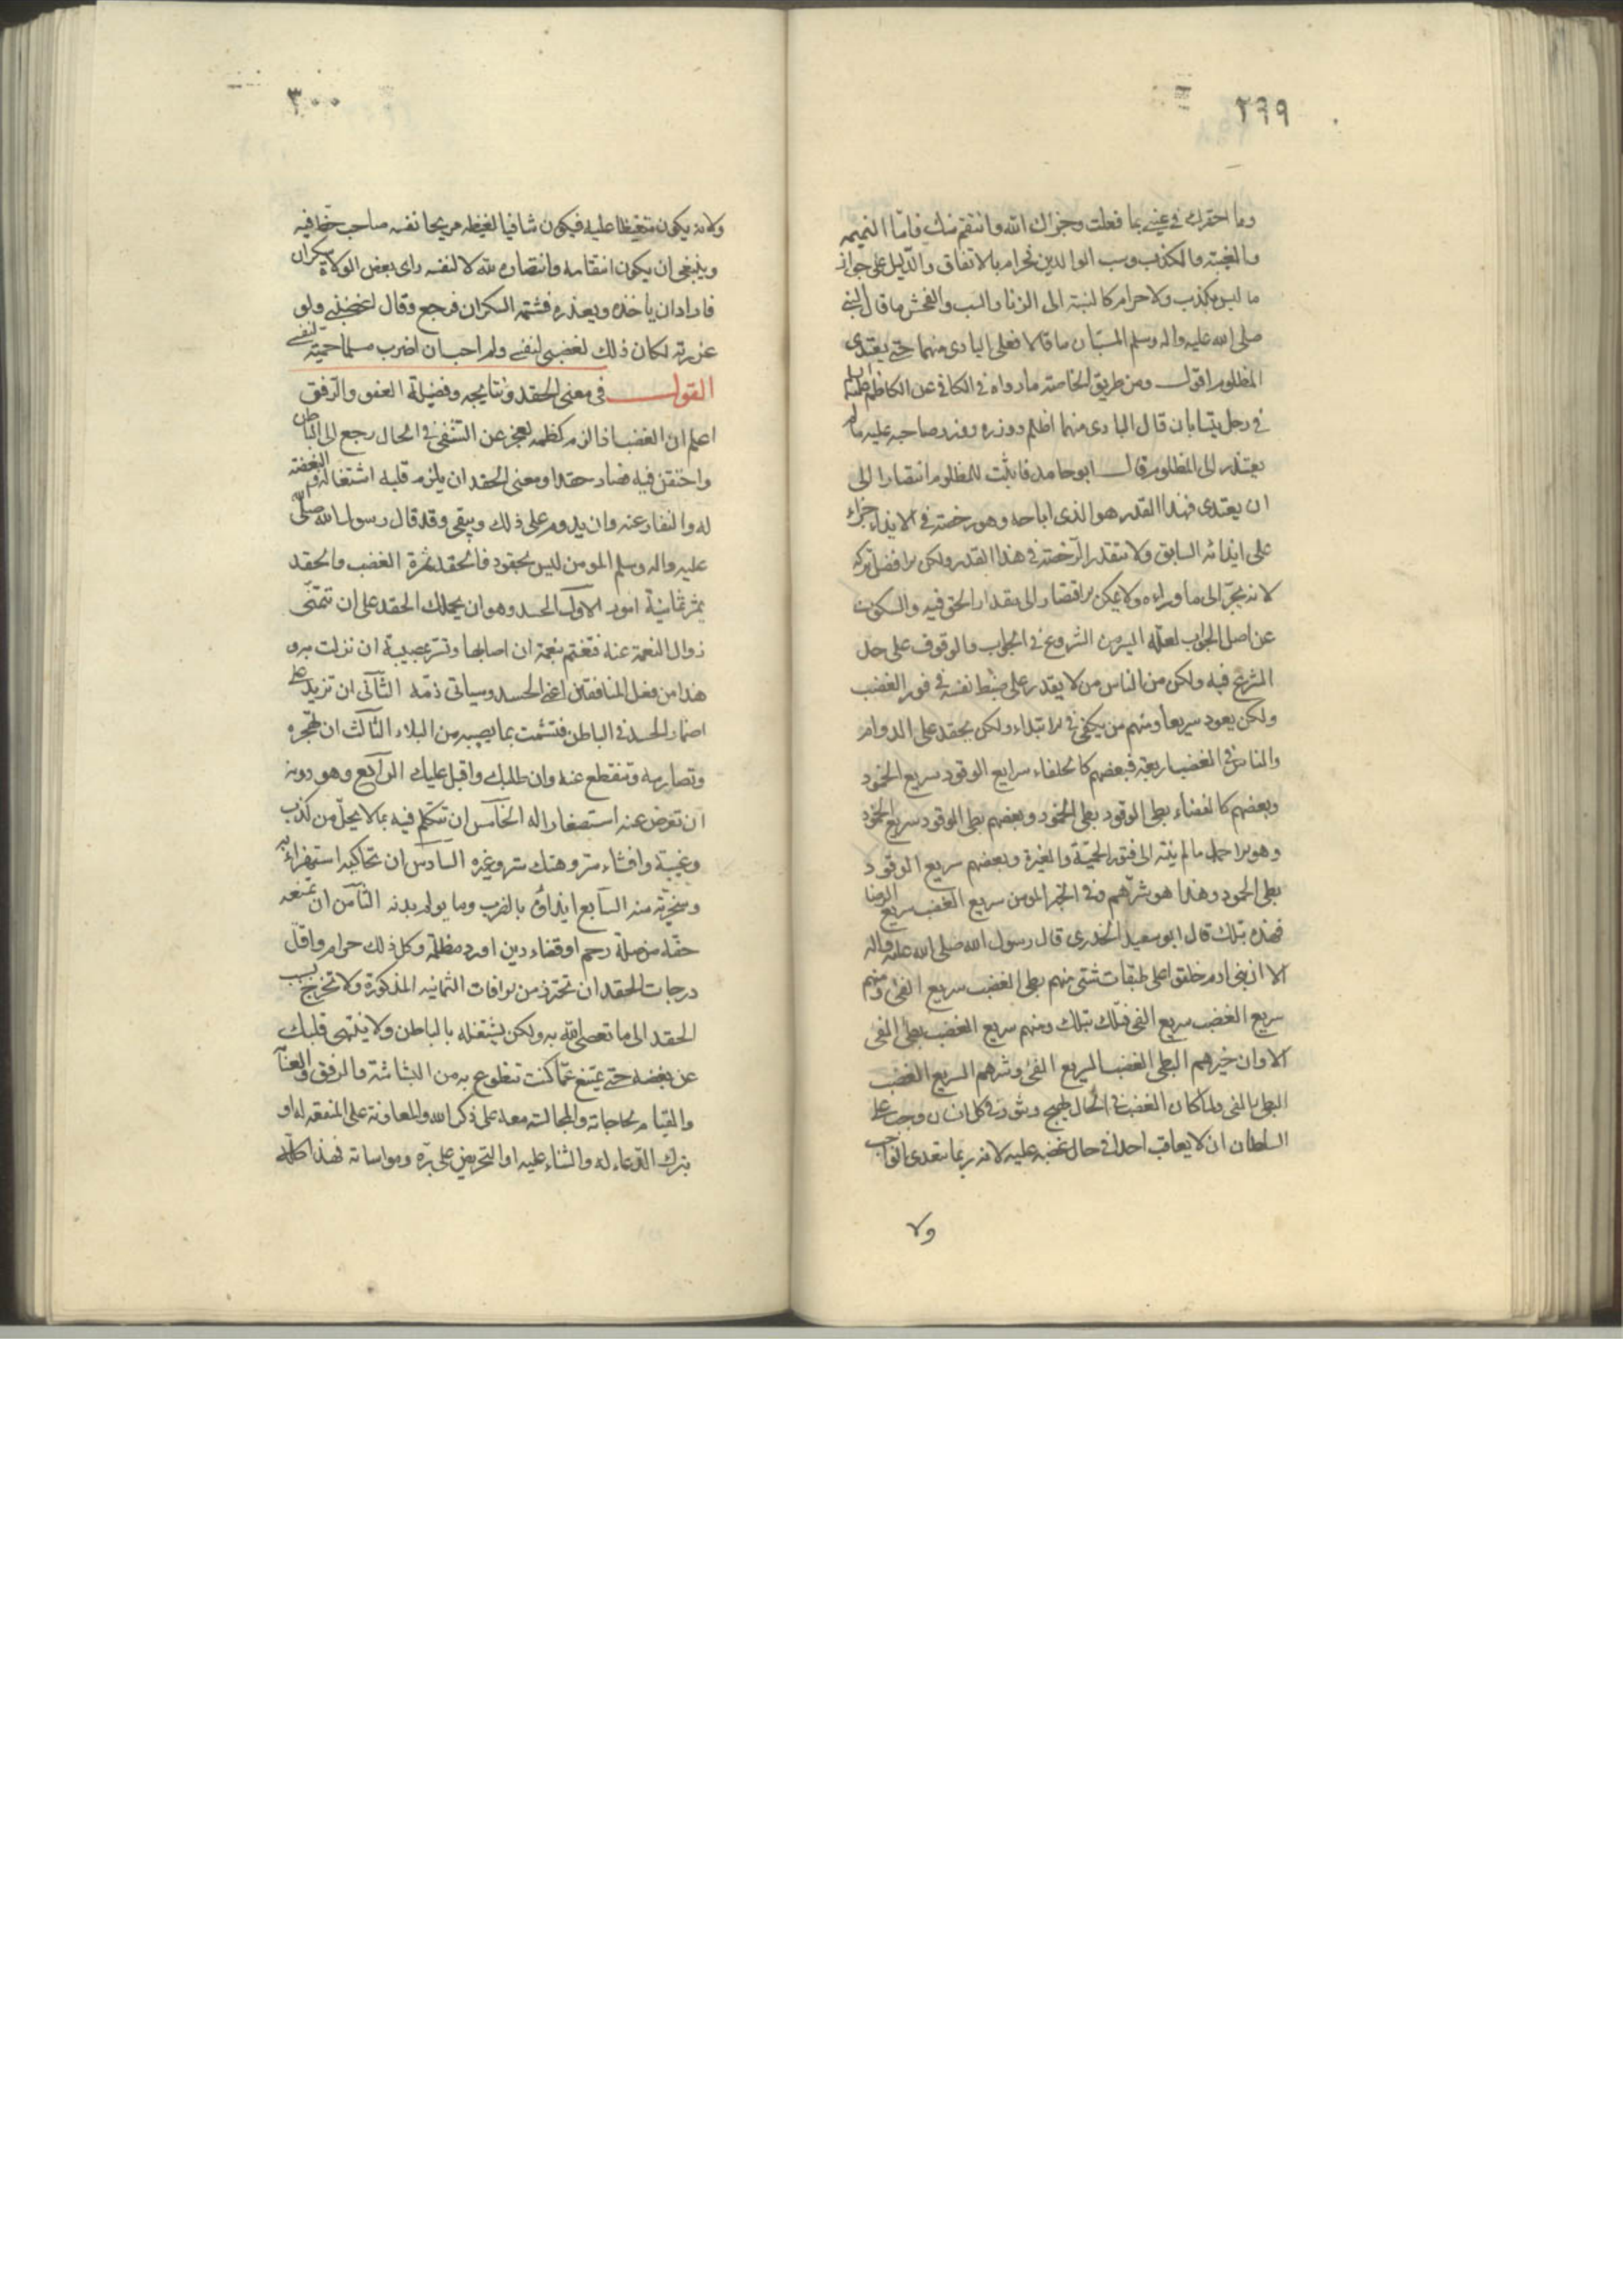 ٢٩٩
وما احقرك في عيني بما فعلت وجزاك الله وانتقم منك فامّا النميمه
والغيبته والكذب وسب الوالدين فحرام بالاتفاق والدّليل على جواز
ما ليس بكذب ولا حرام كالنسبة الى الزنا والسب والفحش ما قال النبي
صلى الله عليه واله وسلم المستبان ما قالا فعلى البادى منهما حتى يعتدى
المظلوم اقول ومن طريق الخاصته مارواه في الكافي عن الكاظم عليه
في رجلين يتسابان قال البادى منهما اظلم ووزره ووزر صاحبه عليه مالم
يعتذر الى المظلوم قال ابو حامد فاثبت للمظلوم انتصارا الى
ان يعتدى فهذا القدر هو الذى اباحه وهو رخصته في الايذاء جزاء
على ايذائه السابق ولا تتقدر الرّخصته في هذا القدر ولكن الافضل تركه
لانه يجرّ الى ما وراءه ولا يمكن الاقتصار الى مقدار الحق فيه والسكوت
عن اصل الجواب لعلّه ايسر من الشروع في الجواب والوقوف على حل
الشرع فيه ولكن من الناس من لا يقدر على ضبط نفسه في فور الغضب
ولكن يعود سريعا ومنهم من يكفي في الابتداء ولكن يحقد على الدوام
والناس في الغضب اربعة فبعضهم كالحلفاء سريع الوقود سريع الخمود
وبعضهم كالغضاء بطى الوقود بطى الخمود وبعضهم بطى الوقود سريع الخمود
وهو الاحمل مالم ينته الى فتور الحميّة والغيرة وبعضهم سريع الوقود
بطى الخمود وهذا هو شرّهم وفي الخبر المومن سريع الغضب سريع الرضا
فهذه بتلك قال ابو سعيد الخدرى قال رسول الله صلى الله عليه واله
الا ان بنى ادم خلقوا على طبقات شتى منهم بطى الغضب سريع الفئ ومنهم
سريع الغضب سريع الفى فتلك بتلك ومنهم سريع الغضب بطئ الفى
الا وان خيرهم البطى الغضب السريع الفئ وشرهم السريع الغضب
البطى الفى ولما كان الغضب في الحال يهيج ويثور في كل انسان وجب على
السلطان ان لا يعاقب احدا في حال غضبه عليه لانه ربما يتعدى الواجب
ولا
٣٠٠
ولانه يكون متغيظا عليه فيكون شافيا لغيظه مريحا نفسه صاحب حظ فيه
وينبغى ان يكون انتقامه وانتصاره لله لا لنفسه راى بعض الولاة سكران
فاراد ان ياخذه ويعذره فشتمه السكران فرجع وقال لغضبى ولو
عزرته لكان ذلك لغضبى لنفسى ولم احب ان اضرب مسلما حميّته لنفسى
القول في معنى الحقد ونتايجه وفضيلة العفو والرّفق
اعلم ان الغضب اذا لزم كظمه لعجز عن التشفى في الحال رجع الى الباطن
واحتقن فيه فصار حقدا ومعنى الحقد ان يلزم قلبه اشتغاله والبغضته
له والنفار عنه وان يدوم على ذلك ويبقى وقد قال رسول الله صلّى الله
عليه واله وسلم المومن ليس بحقود فالحقد ثمرة الغضب والحقد
يثمر ثمانية امور الاول الحسد وهو ان يحملك الحقد على ان تتمنّى
زوال النعمة عنه فتغتم بنعمة ان اصابها وتسر بمصيبة ان نزلت به و
هذا من فعل المنافقين اعنى الحسد وسياتى ذمّه الثّانى ان تزيد على
اضمار الحسد في الباطن فتشمت بما يصيبه من البلاء الثّالث ان تهجره
وتصارمه وتنقطع عنه وان طلبك واقبل عليك الرابع وهو دونه
ان تعرض عنه استصغارا له الخامس ان تتكلم فيه بما لا يحلّ من كذب
وغيبة وافشاء ستر وهتك ستر وغيره السادس ان تحاكيه استهزاء به
وسخريّة منه السّابع ايذاؤه بالضرب وما يولم بدنه الثّامن ان تمنعه
حقّه من صلة رحم او قضاء دين او رد مظلمة وكل ذلك حرام واقل
درجات الحقد ان تحترز من الافات الثمانيه المذكورة ولا تخرج بسبب
الحقد الى ما تعصى الله به ولكن يشتغله بالباطن ولا ينتهى قلبك
عن بغضه حتى يمتنع عمّا كنت تتطوع به من البشاشة والرفق والعناية
والقيام بحاجاته والمجالسته معه على ذكر الله والمعاونة على المنفعه له او
بترك الدّعاء له والثناء عليه او التحريض على برّه ومواساته فهذا كلّه